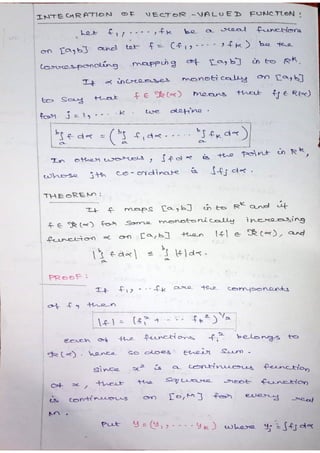 INTEGRATION OF VECTOR-VALUED FUNCTION:
Let f₁, ....., fk be a real functions
on [a,b] and let f = (f₁, ....., fk) be the
corresponding mapping of [a,b] in to Rk.
If α increases monotically on [a,b]
to say that f ∈ R(α) means that fj ∈ R(α)
for j=1, .... k. we define.
b∫a f dα = (b∫a f₁dα ..... b∫a fk dα)
In other words, ∫f dα is the point in Rk,
whose jth co-ordinate is ∫fj dα.
THEOREM:
If f maps [a,b] into Rk and if
f ∈ R(α) for some monotonically increasing
function α on [a,b] then |f| ∈ R(α), and
|b∫a f dα| ≤ b∫a |f|dα.
PROOF:
If f₁, ..., fk are the components
of f, then
|f| = (f₁² + ... fk²)^1/2
each of the functions fi² belongs to
R(α). hence so does their sum.
Since x² is a continuous function
of x, that the square root function
is continuous on [0,M] for every real
M.
Put y = (y₁, .... yk) where yj = ∫fj dα